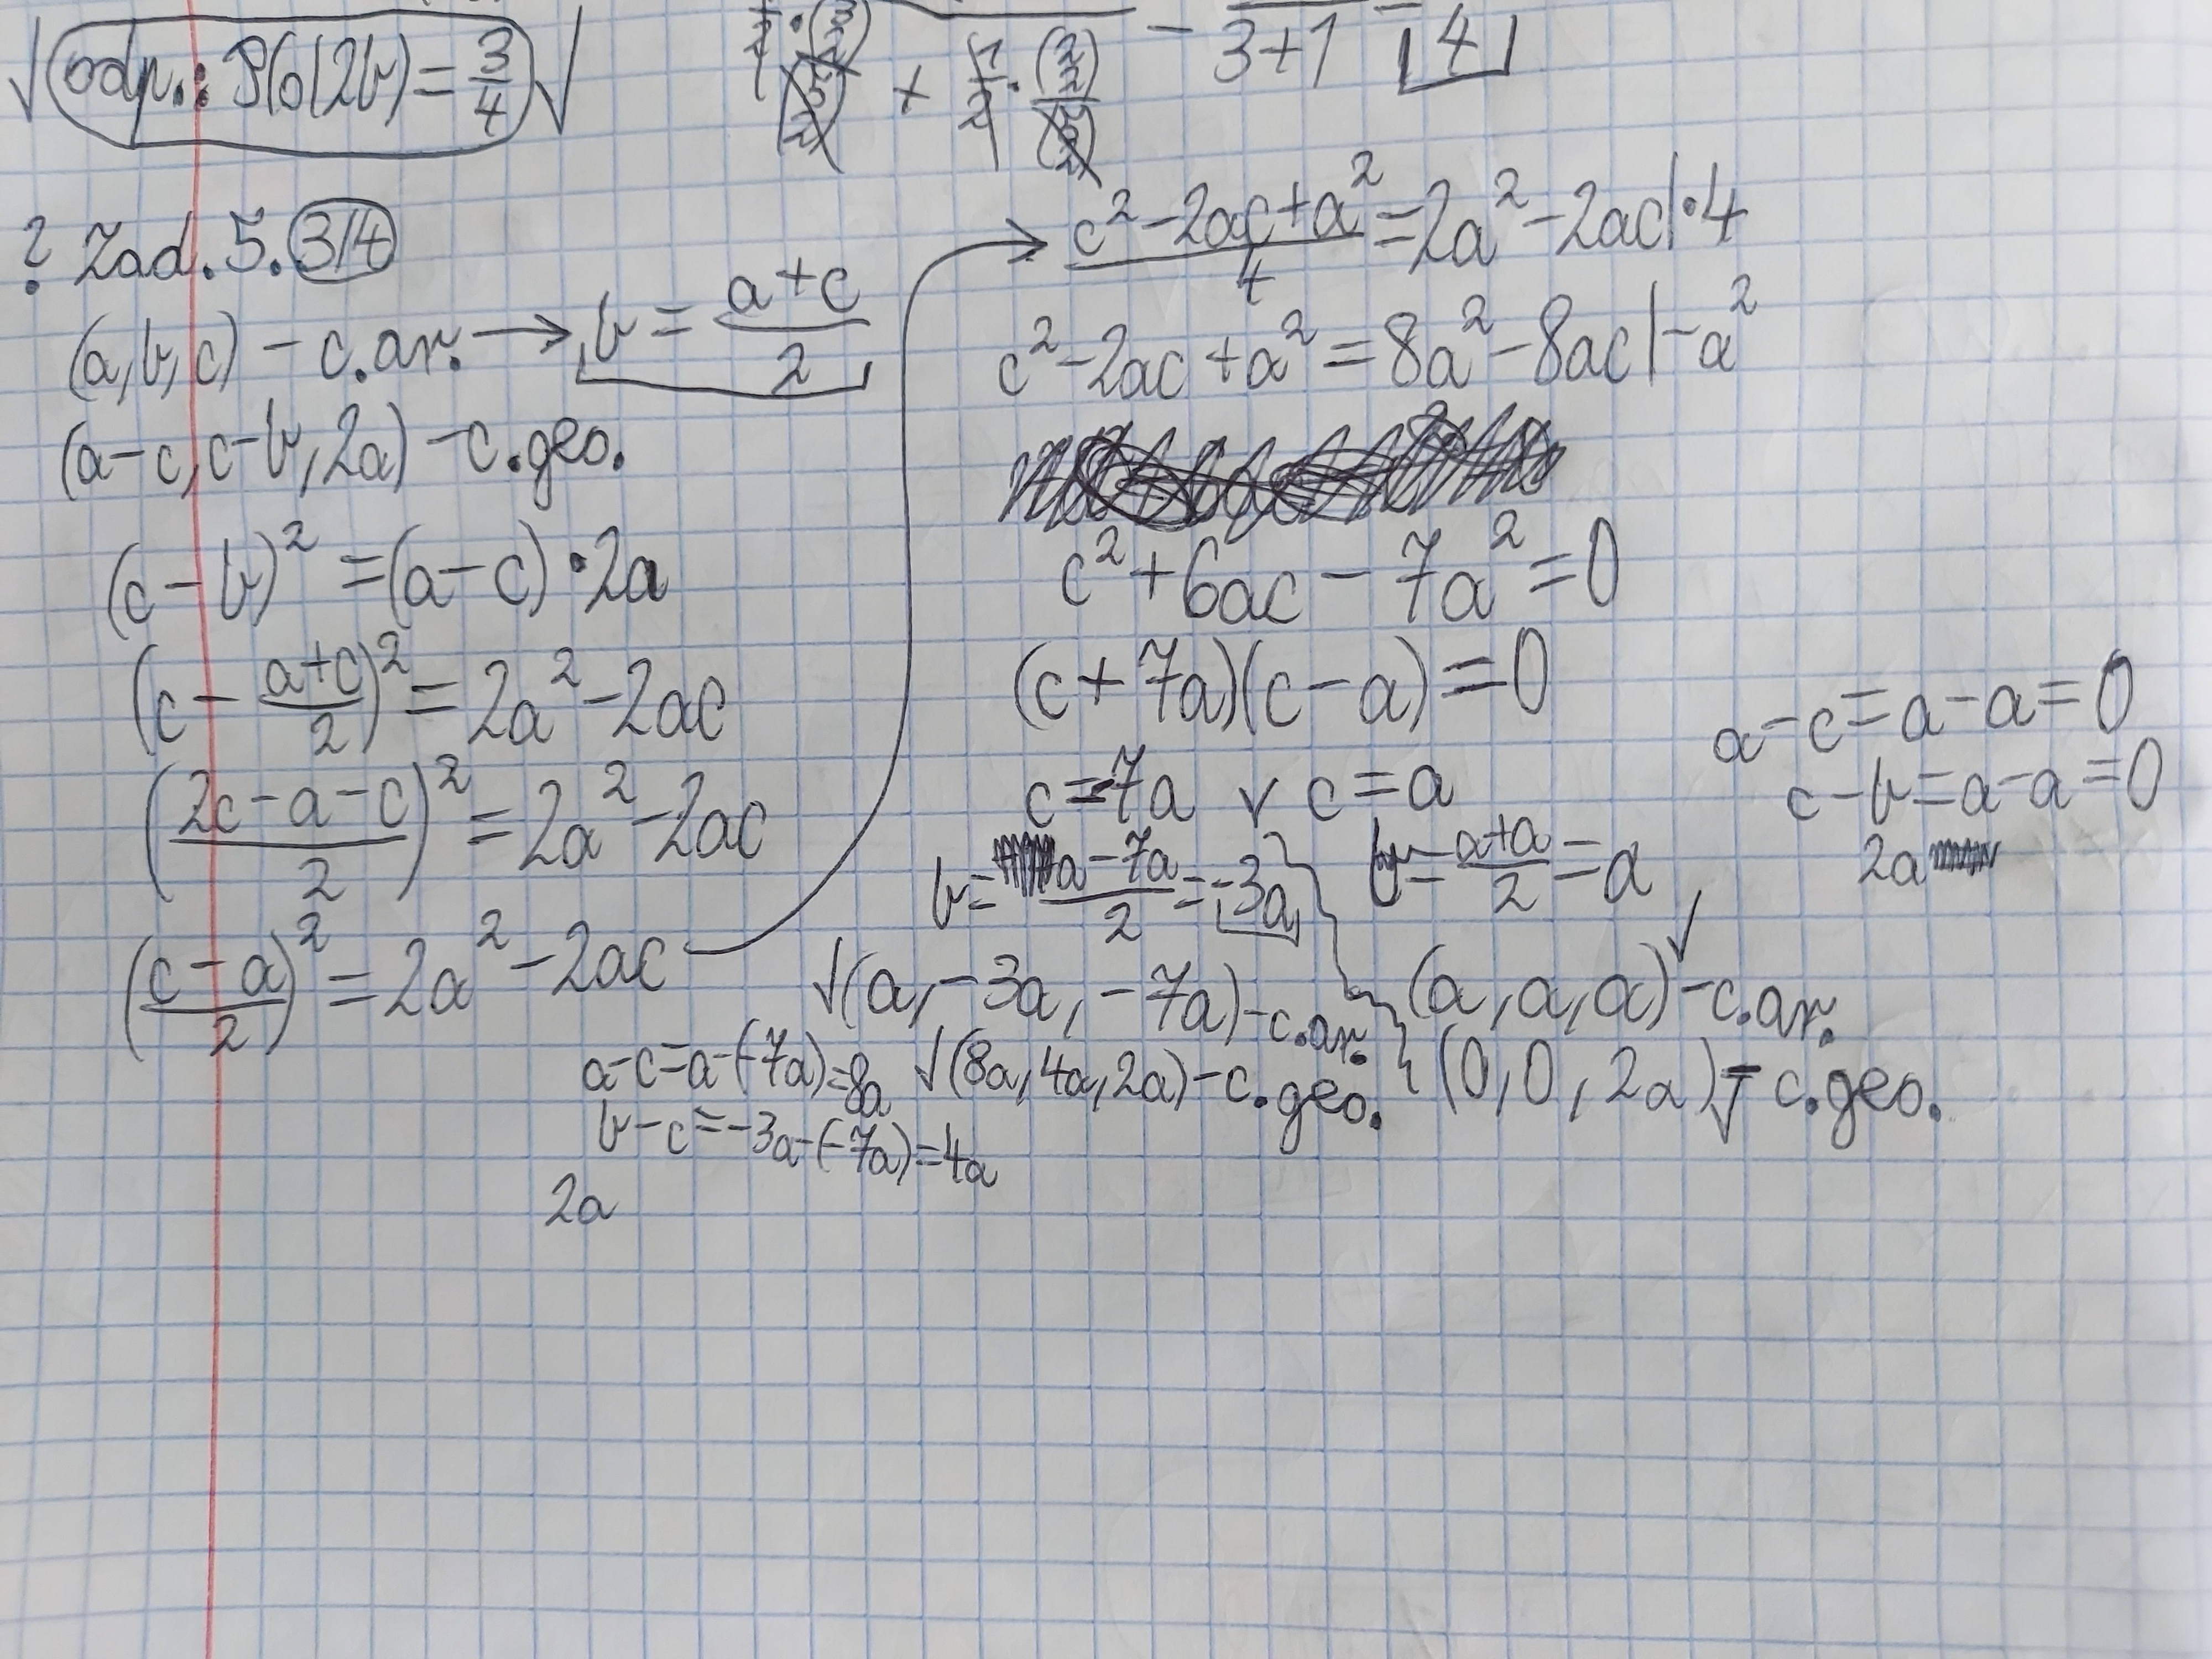 √ odp.: P(O|2b) = 3/4 √
3+1 = 4
? Zad. 5. 3/4
(a, b, c) - c.ar. → b = (a+c)/2
(a-c, c-b, 2a) - c.geo.
(c - b)² = (a-c)·2a
(c - (a+c)/2)² = 2a² - 2ac
((2c-a-c)/2)² = 2a² - 2ac
((c-a)/2)² = 2a² - 2ac
→ (c² - 2ac + a²)/4 = 2a² - 2ac |·4
c² - 2ac + a² = 8a² - 8ac |-a²
c² + 6ac - 7a² = 0
(c + 7a)(c - a) = 0
c = -7a ∨ c = a
b = (a-7a)/2 = -3a
b = (a+a)/2 = a
a-c = a-a = 0
c-b = a-a = 0
2a
√(a, -3a, -7a) - c.ar.
a-c = a-(-7a) = 8a
b-c = -3a-(-7a) = 4a
2a
√(8a, 4a, 2a) - c.geo.
(a, a, a)√ - c.ar.
(0, 0, 2a)√ - c.geo.